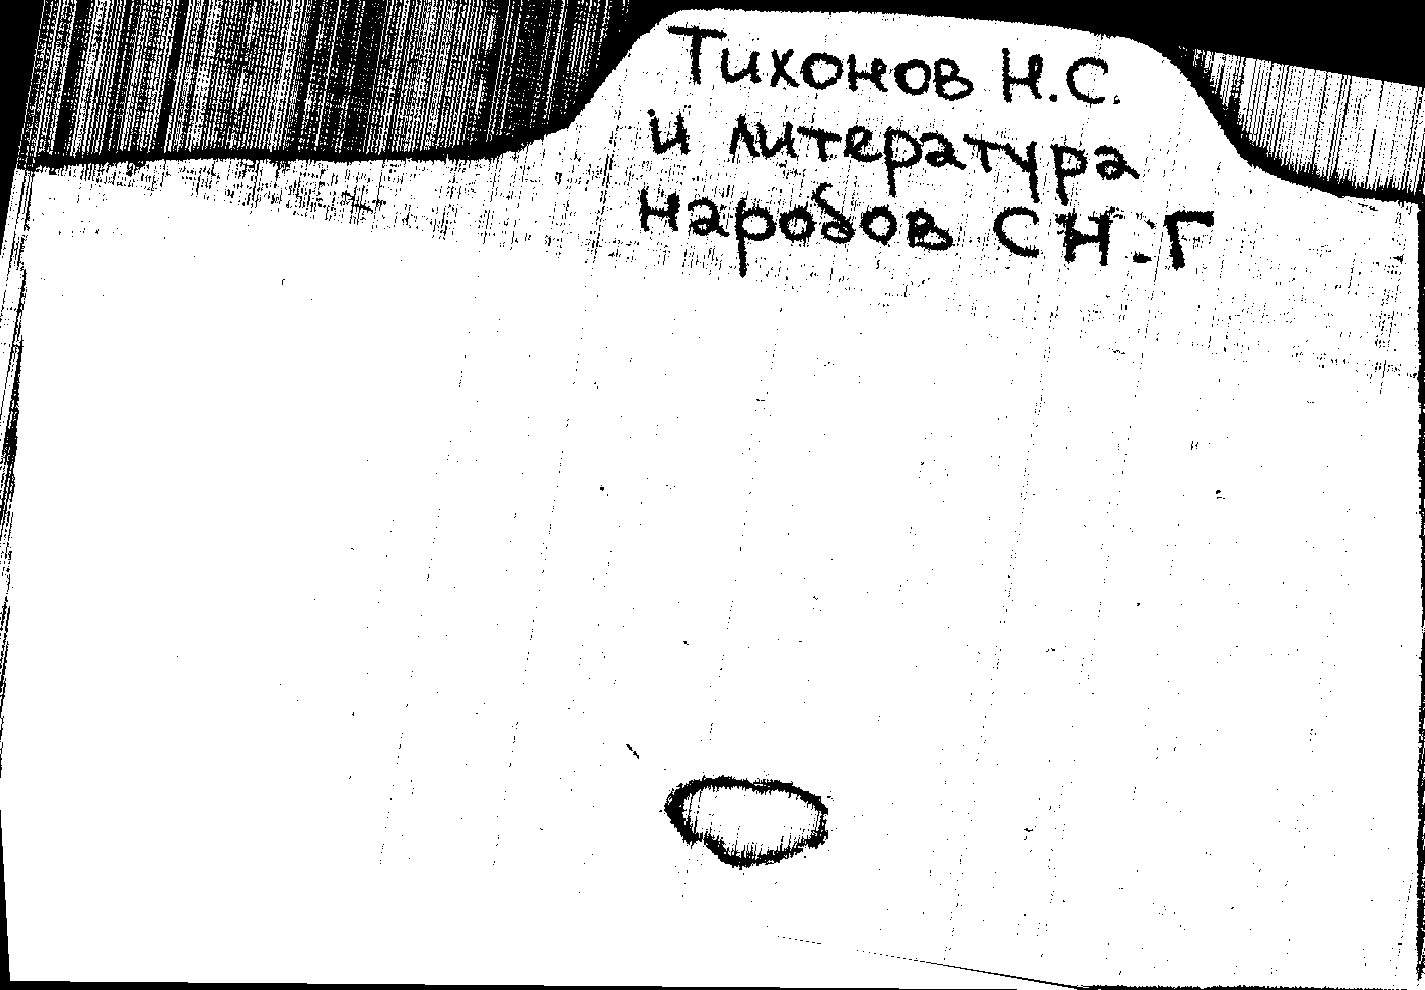 Тихонов Н.С.
и литература
народов СНГ